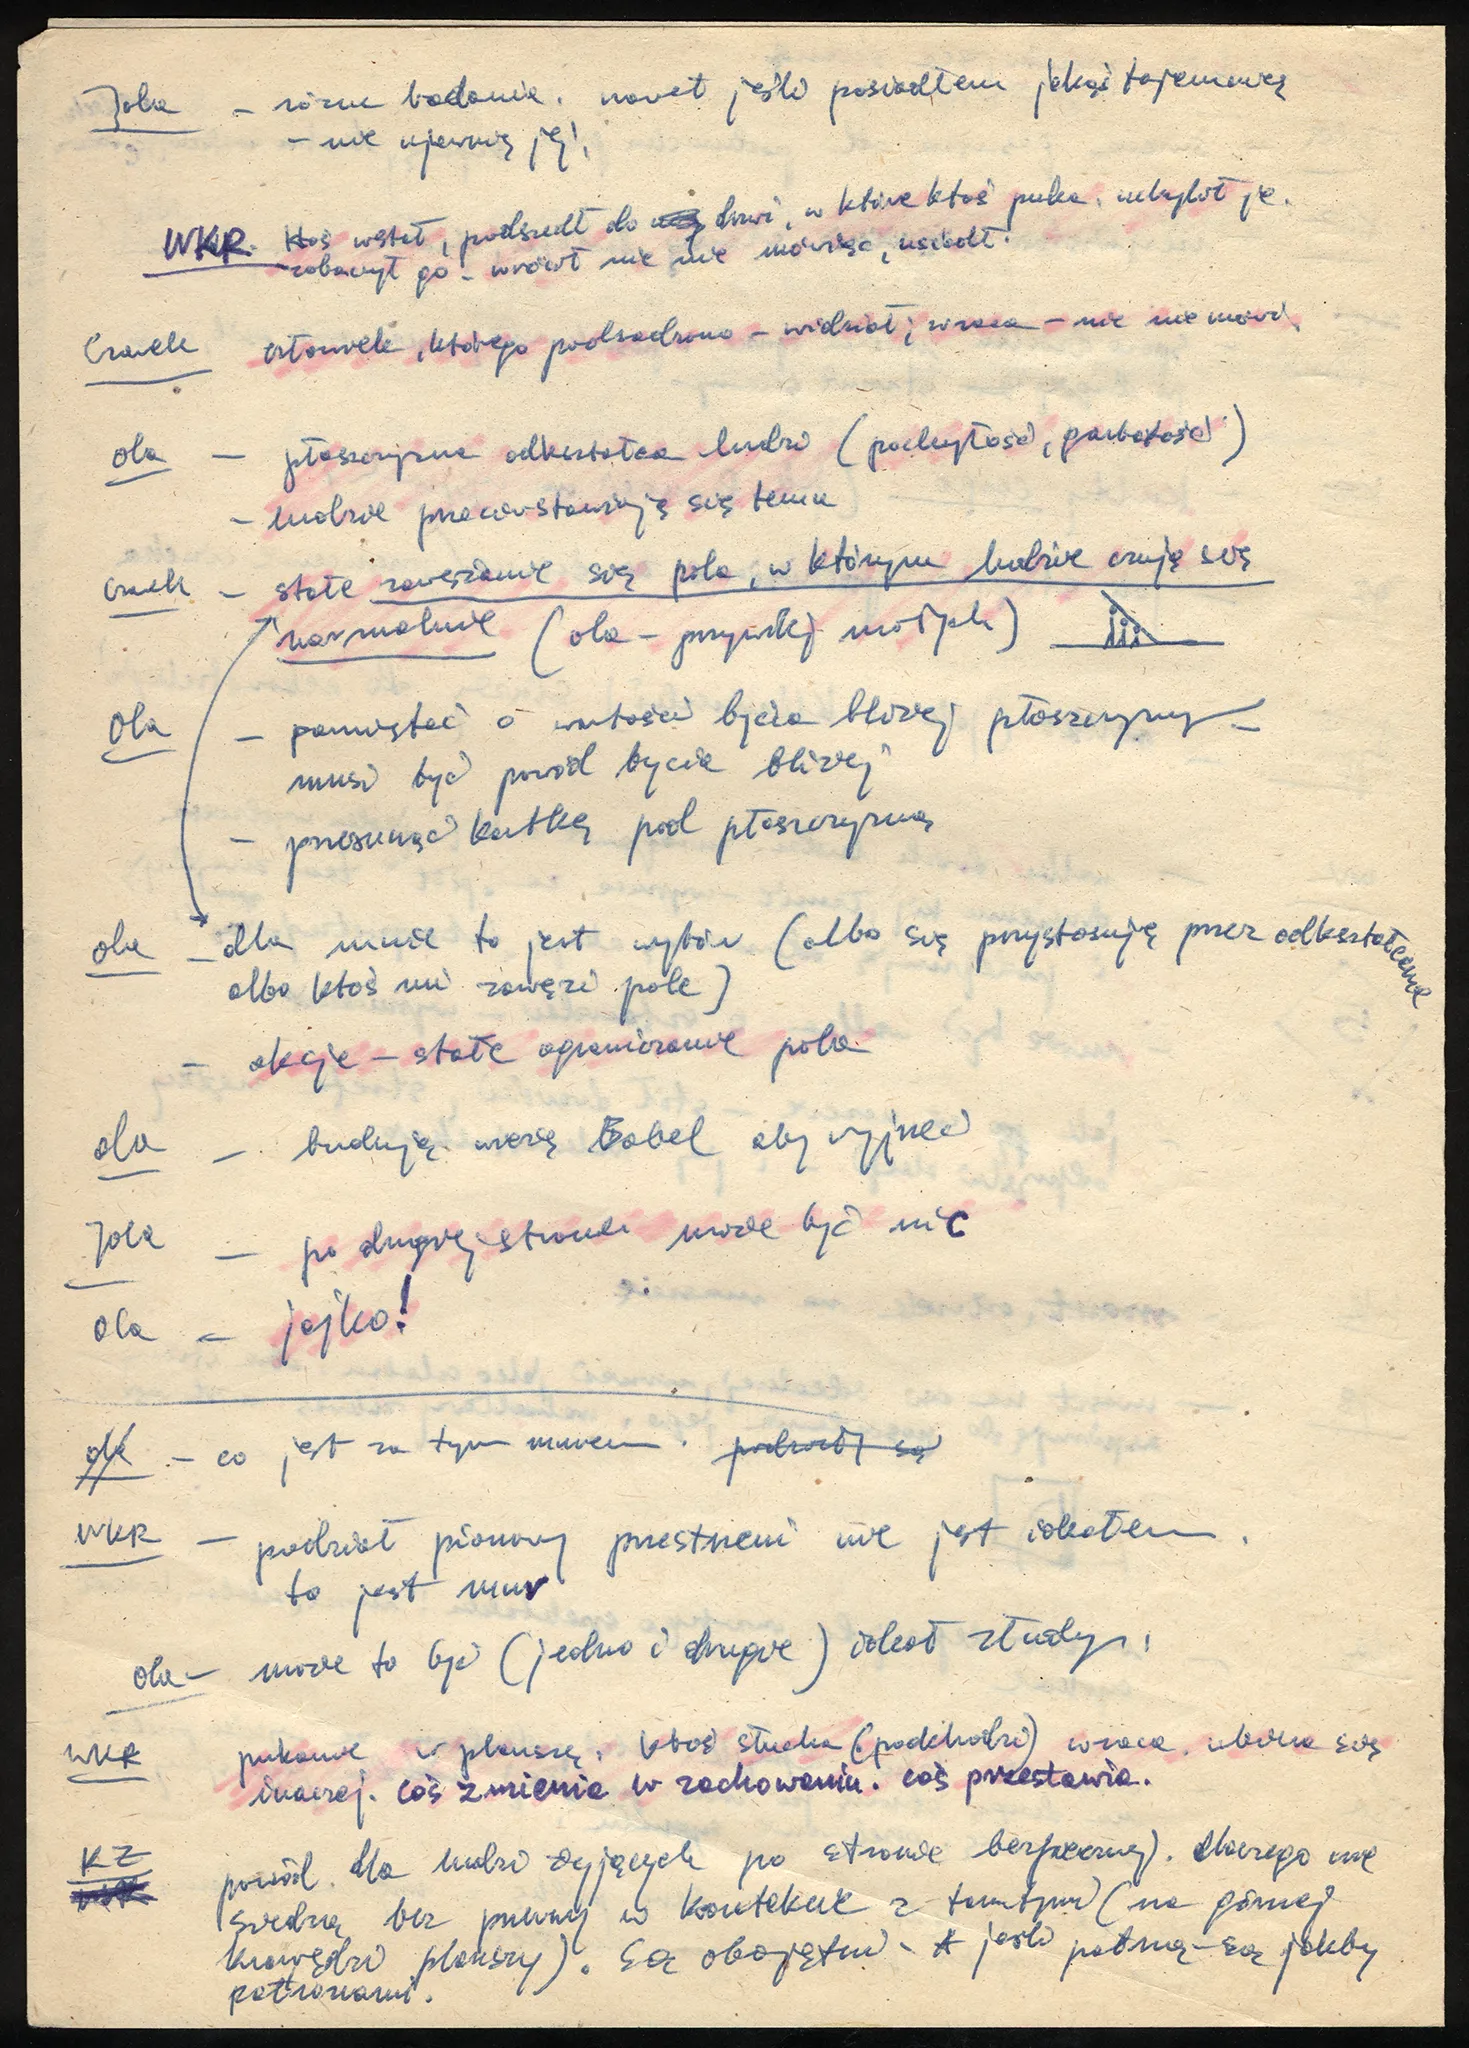 Jola – różne badania. nawet jeśli posiadłem jakąś tajemnicę
– nie ujawnię jej.
WKR. Ktoś wstał, podszedł do drzwi, w które ktoś puka. uchylił je.
zobaczył go – wrócił nic nie mówiąc, usiadł.
Czarek człowiek, którego podsadzono – widział, wraca – nic nie mówi.
Ola – płaszczyzna odkształca ludzi (pochyłość, garbatość)
– ludzie przeciwstawiają się temu
Czarek – stałe zawężanie się pola, w którym ludzie czują się
normalnie (Ola – przywilej małych)
Ola – pamiętać o wartości bycia bliżej płaszczyzny –
musi być powód bycia bliżej
– przesunąć kartkę pod płaszczyzną
Ola – dla mnie to jest wybór (albo się przystosuję przez odkształcenie
albo ktoś mi zawęzi pole)
– akcje – stałe ograniczanie pola
Ola – budują wieżę Babel aby wyjrzeć
Jola – po drugiej stronie może być nic
Ola – jajko!
Ola – co jest za tym murem. podzioły są
WKR – podział pionowy przestrzeni nie jest ideałem.
to jest mur
Ola – może to być (jedno i drugie) ideał złudny.
WKR pukanie w planszę. ktoś słucha (podchodzi) wraca. ubiera się
inaczej. coś zmienia w zachowaniu. coś przestawia.
KZ powód dla ludzi żyjących po stronie bezpiecznej. dlaczego nie
siedzą bez przerwy w kontakcie z tamtymi (na górnej
krawędzi planszy). Są obojętni – A jeśli patrzą – są jakby
patronami.